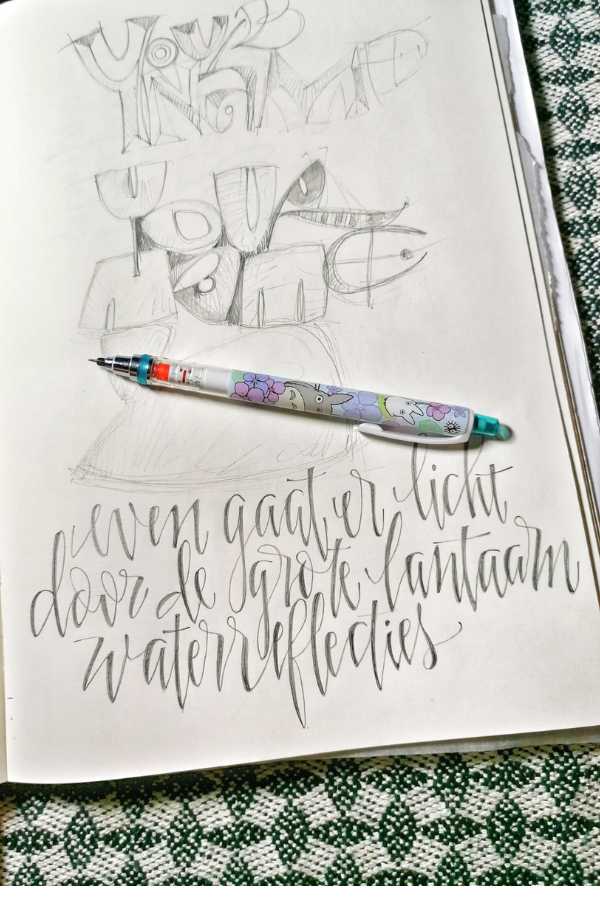 YOUR
YOUR
name
even gaat er licht
door de grote lantaarn
waterreflecties